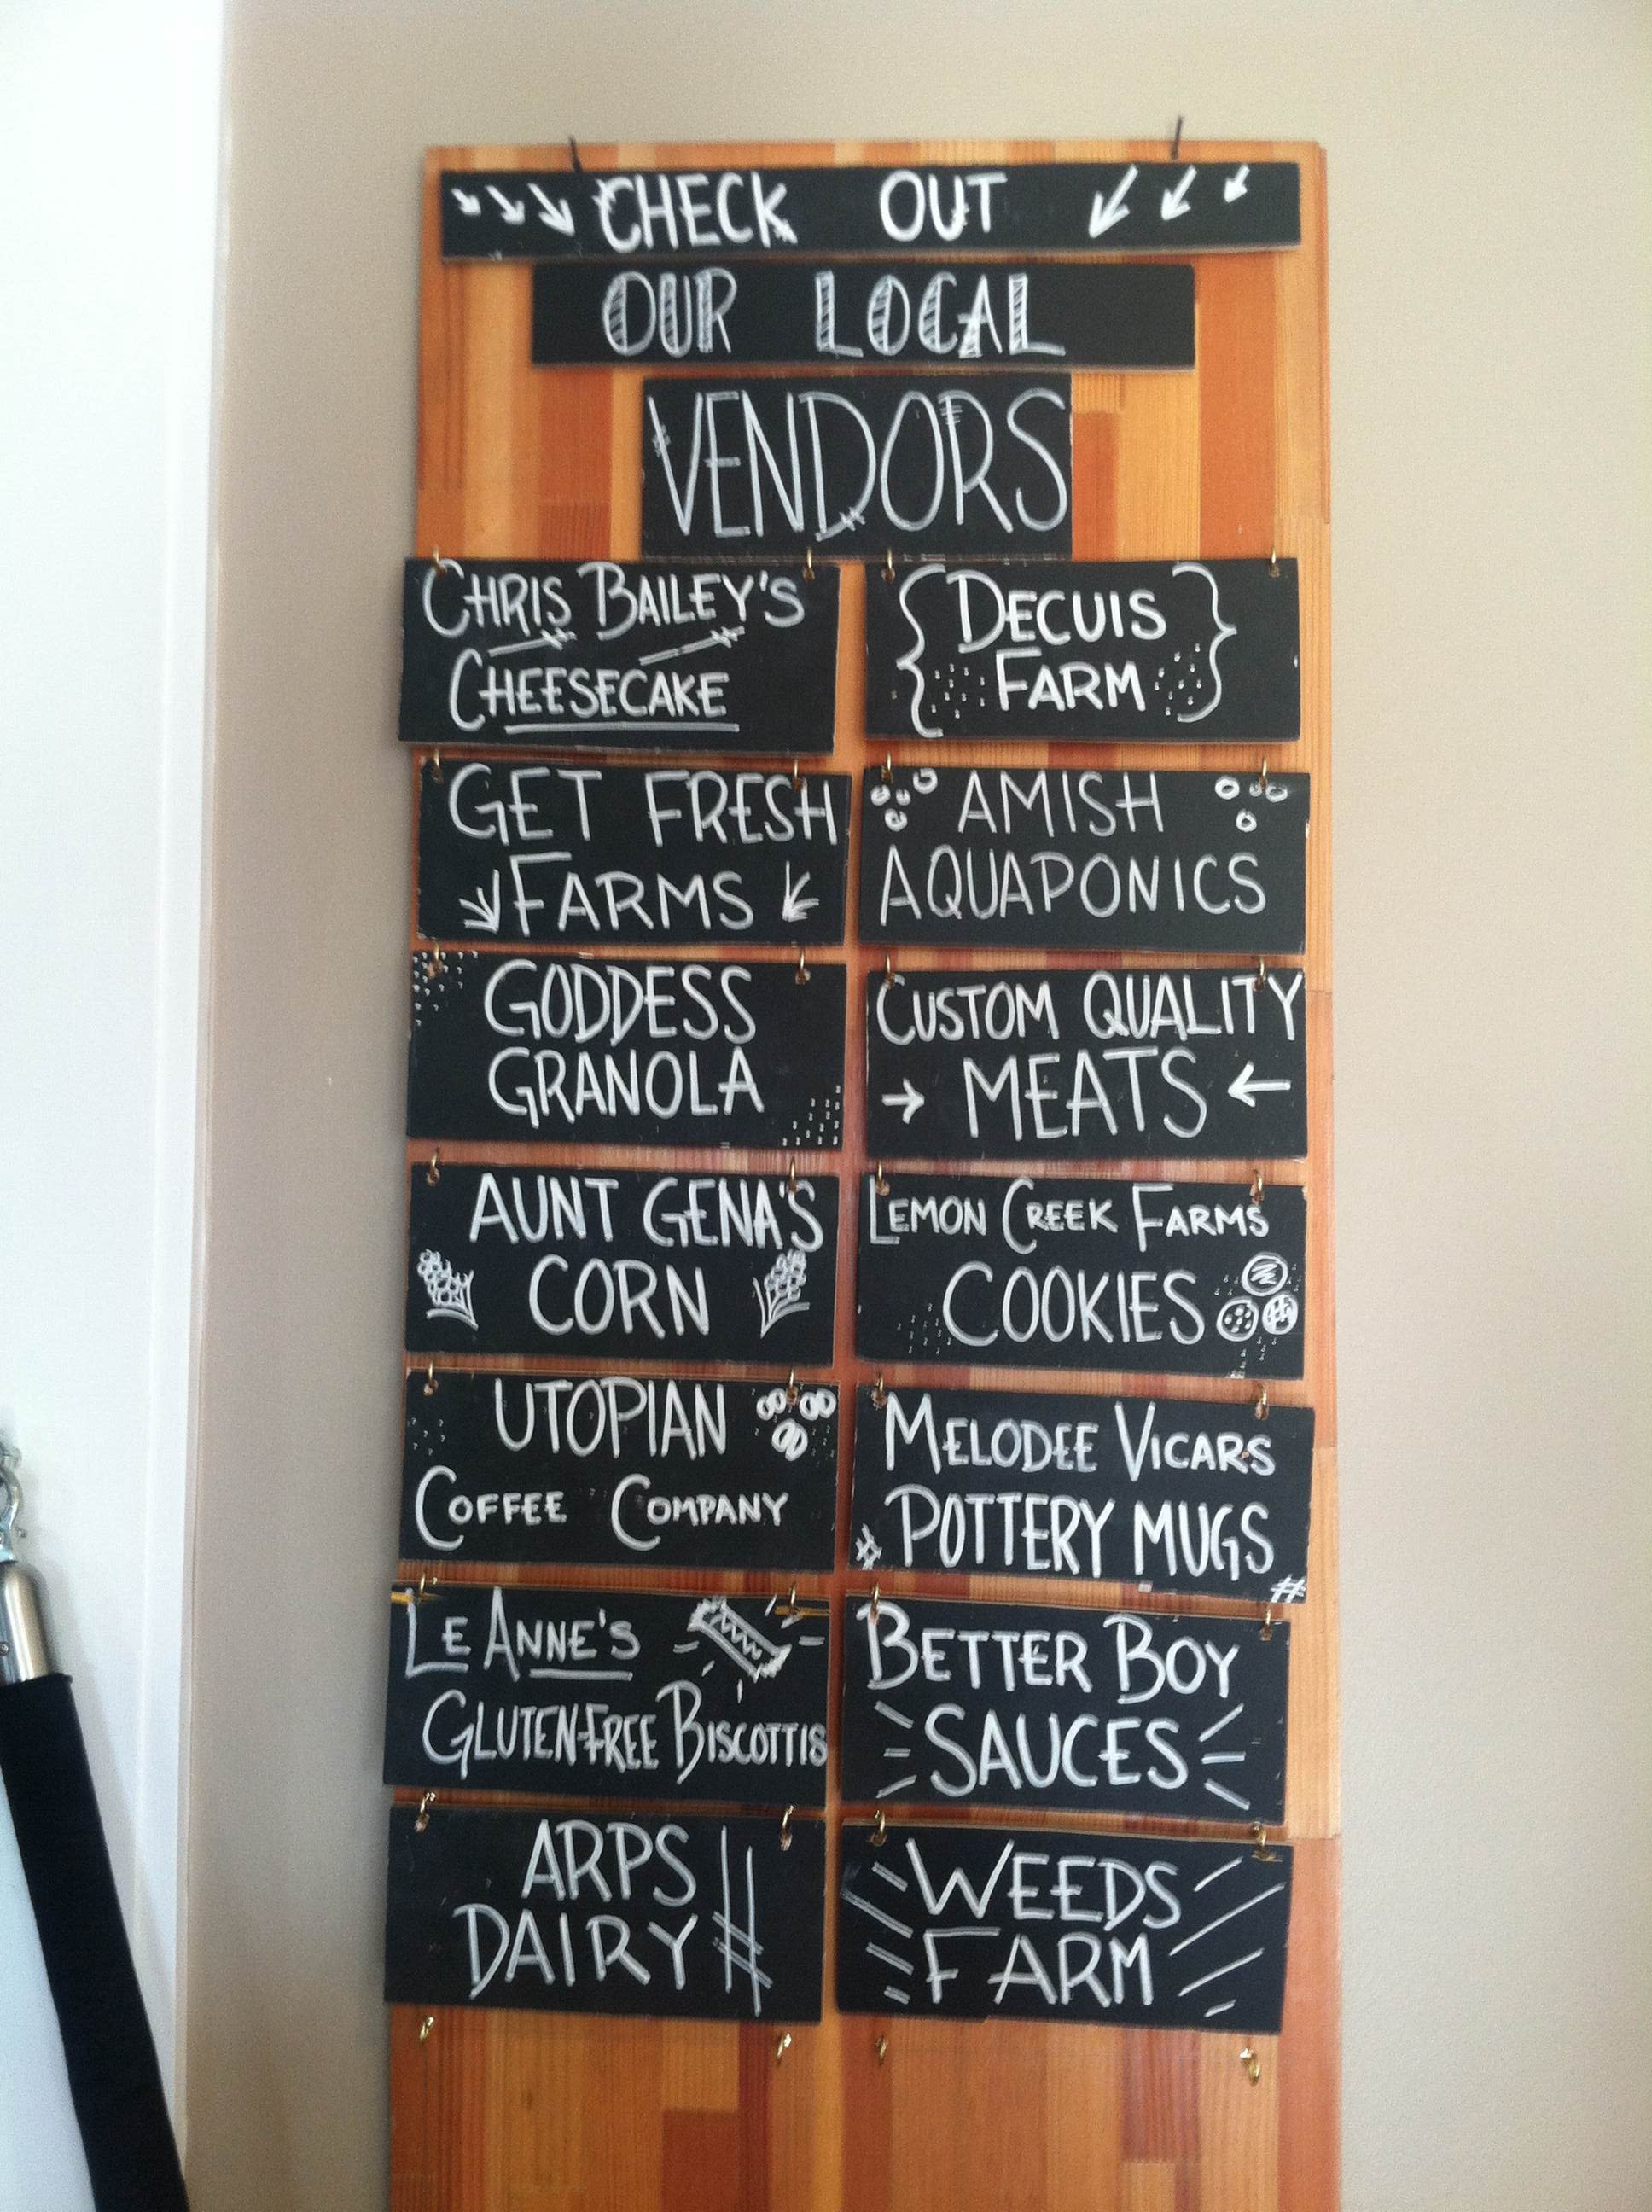 CHECK OUT
OUR LOCAL
VENDORS
CHRIS BAILEY'S
CHEESECAKE
DECUIS
FARM
GET FRESH
FARMS
AMISH
AQUAPONICS
GODDESS
GRANOLA
CUSTOM QUALITY
MEATS
AUNT GENA'S
CORN
LEMON CREEK FARMS
COOKIES
UTOPIAN
COFFEE COMPANY
MELODEE VICARS
POTTERY MUGS
LE ANNE'S
GLUTEN-FREE BISCOTTIS
BETTER BOY
SAUCES
ARPS
DAIRY
WEEDS
FARM